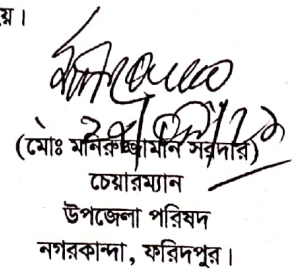 য়।
(মোঃ মনিরুজ্জামান সরদার)
চেয়ারম্যান
উপজেলা পরিষদ
নগরকান্দা, ফরিদপুর।